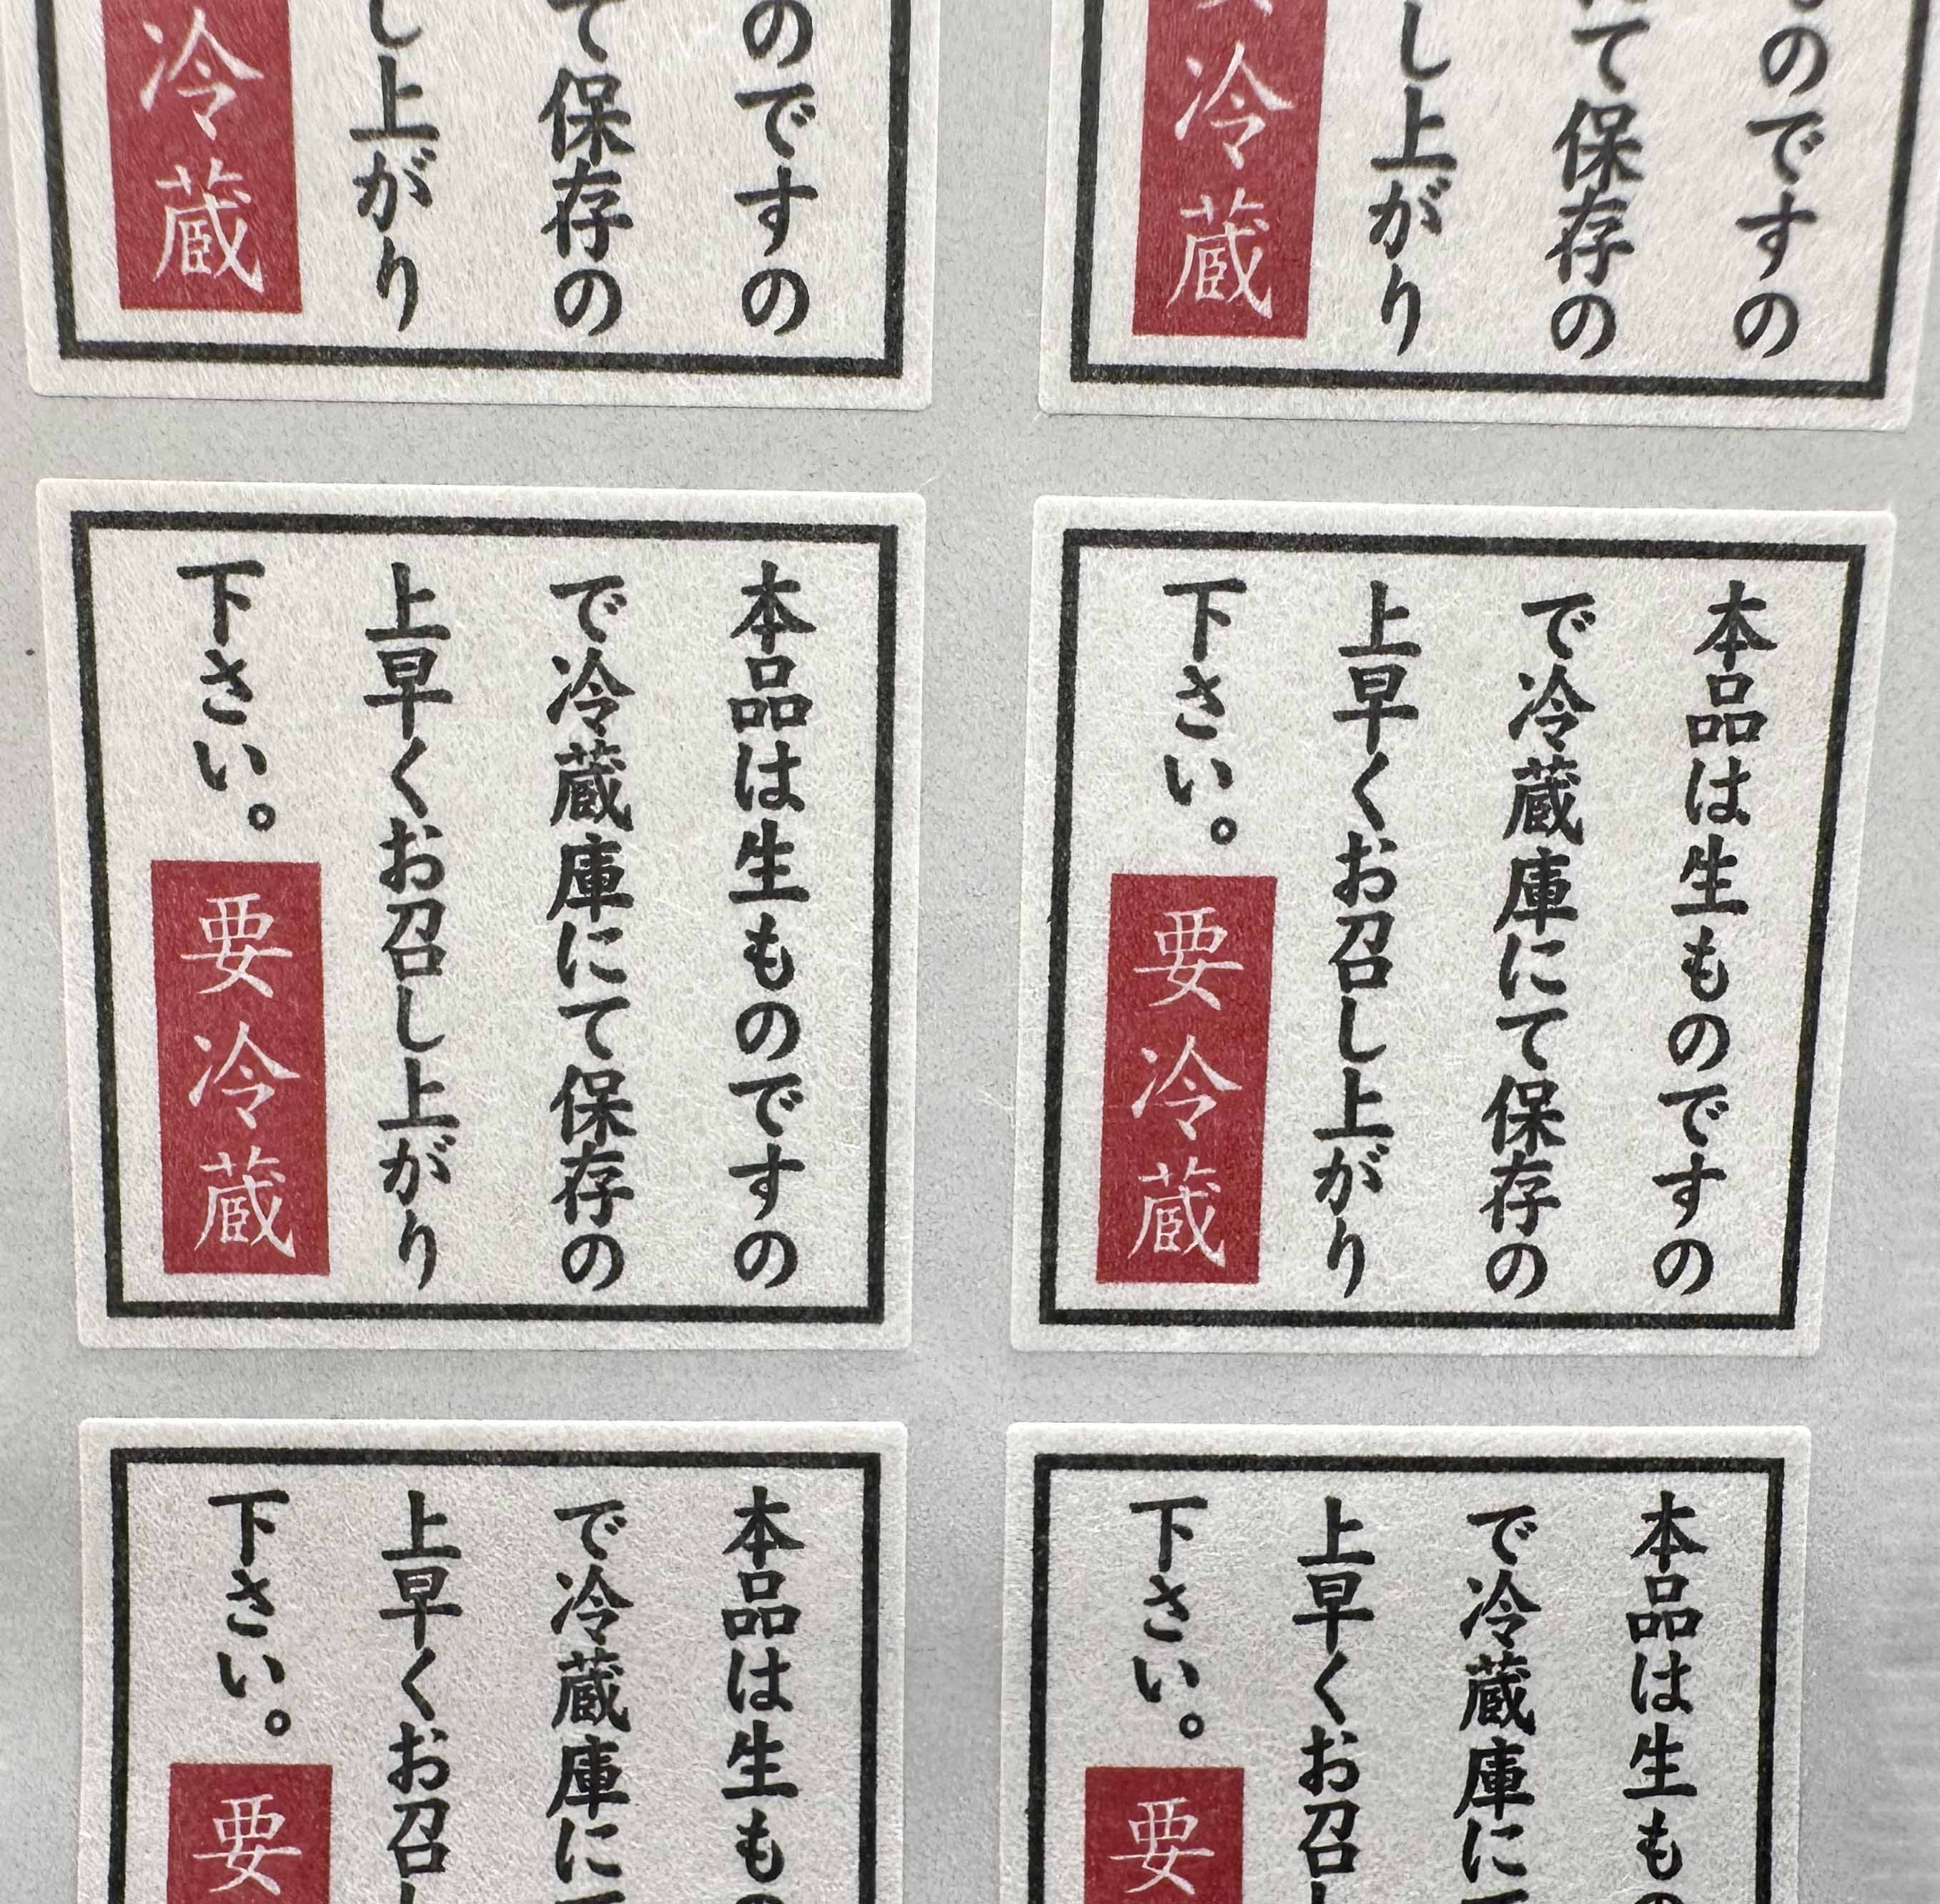 のですの
て保存の
し上がり
冷蔵
のですの
て保存の
し上がり
冷蔵
本品は生ものですの
で冷蔵庫にて保存の
上早くお召し上がり
下さい。
要冷蔵
本品は生ものですの
で冷蔵庫にて保存の
上早くお召し上がり
下さい。
要冷蔵
本品は生も
で冷蔵庫に
上早くお召
下さい。
要
本品は生も
で冷蔵庫に
上早くお召
下さい。
要